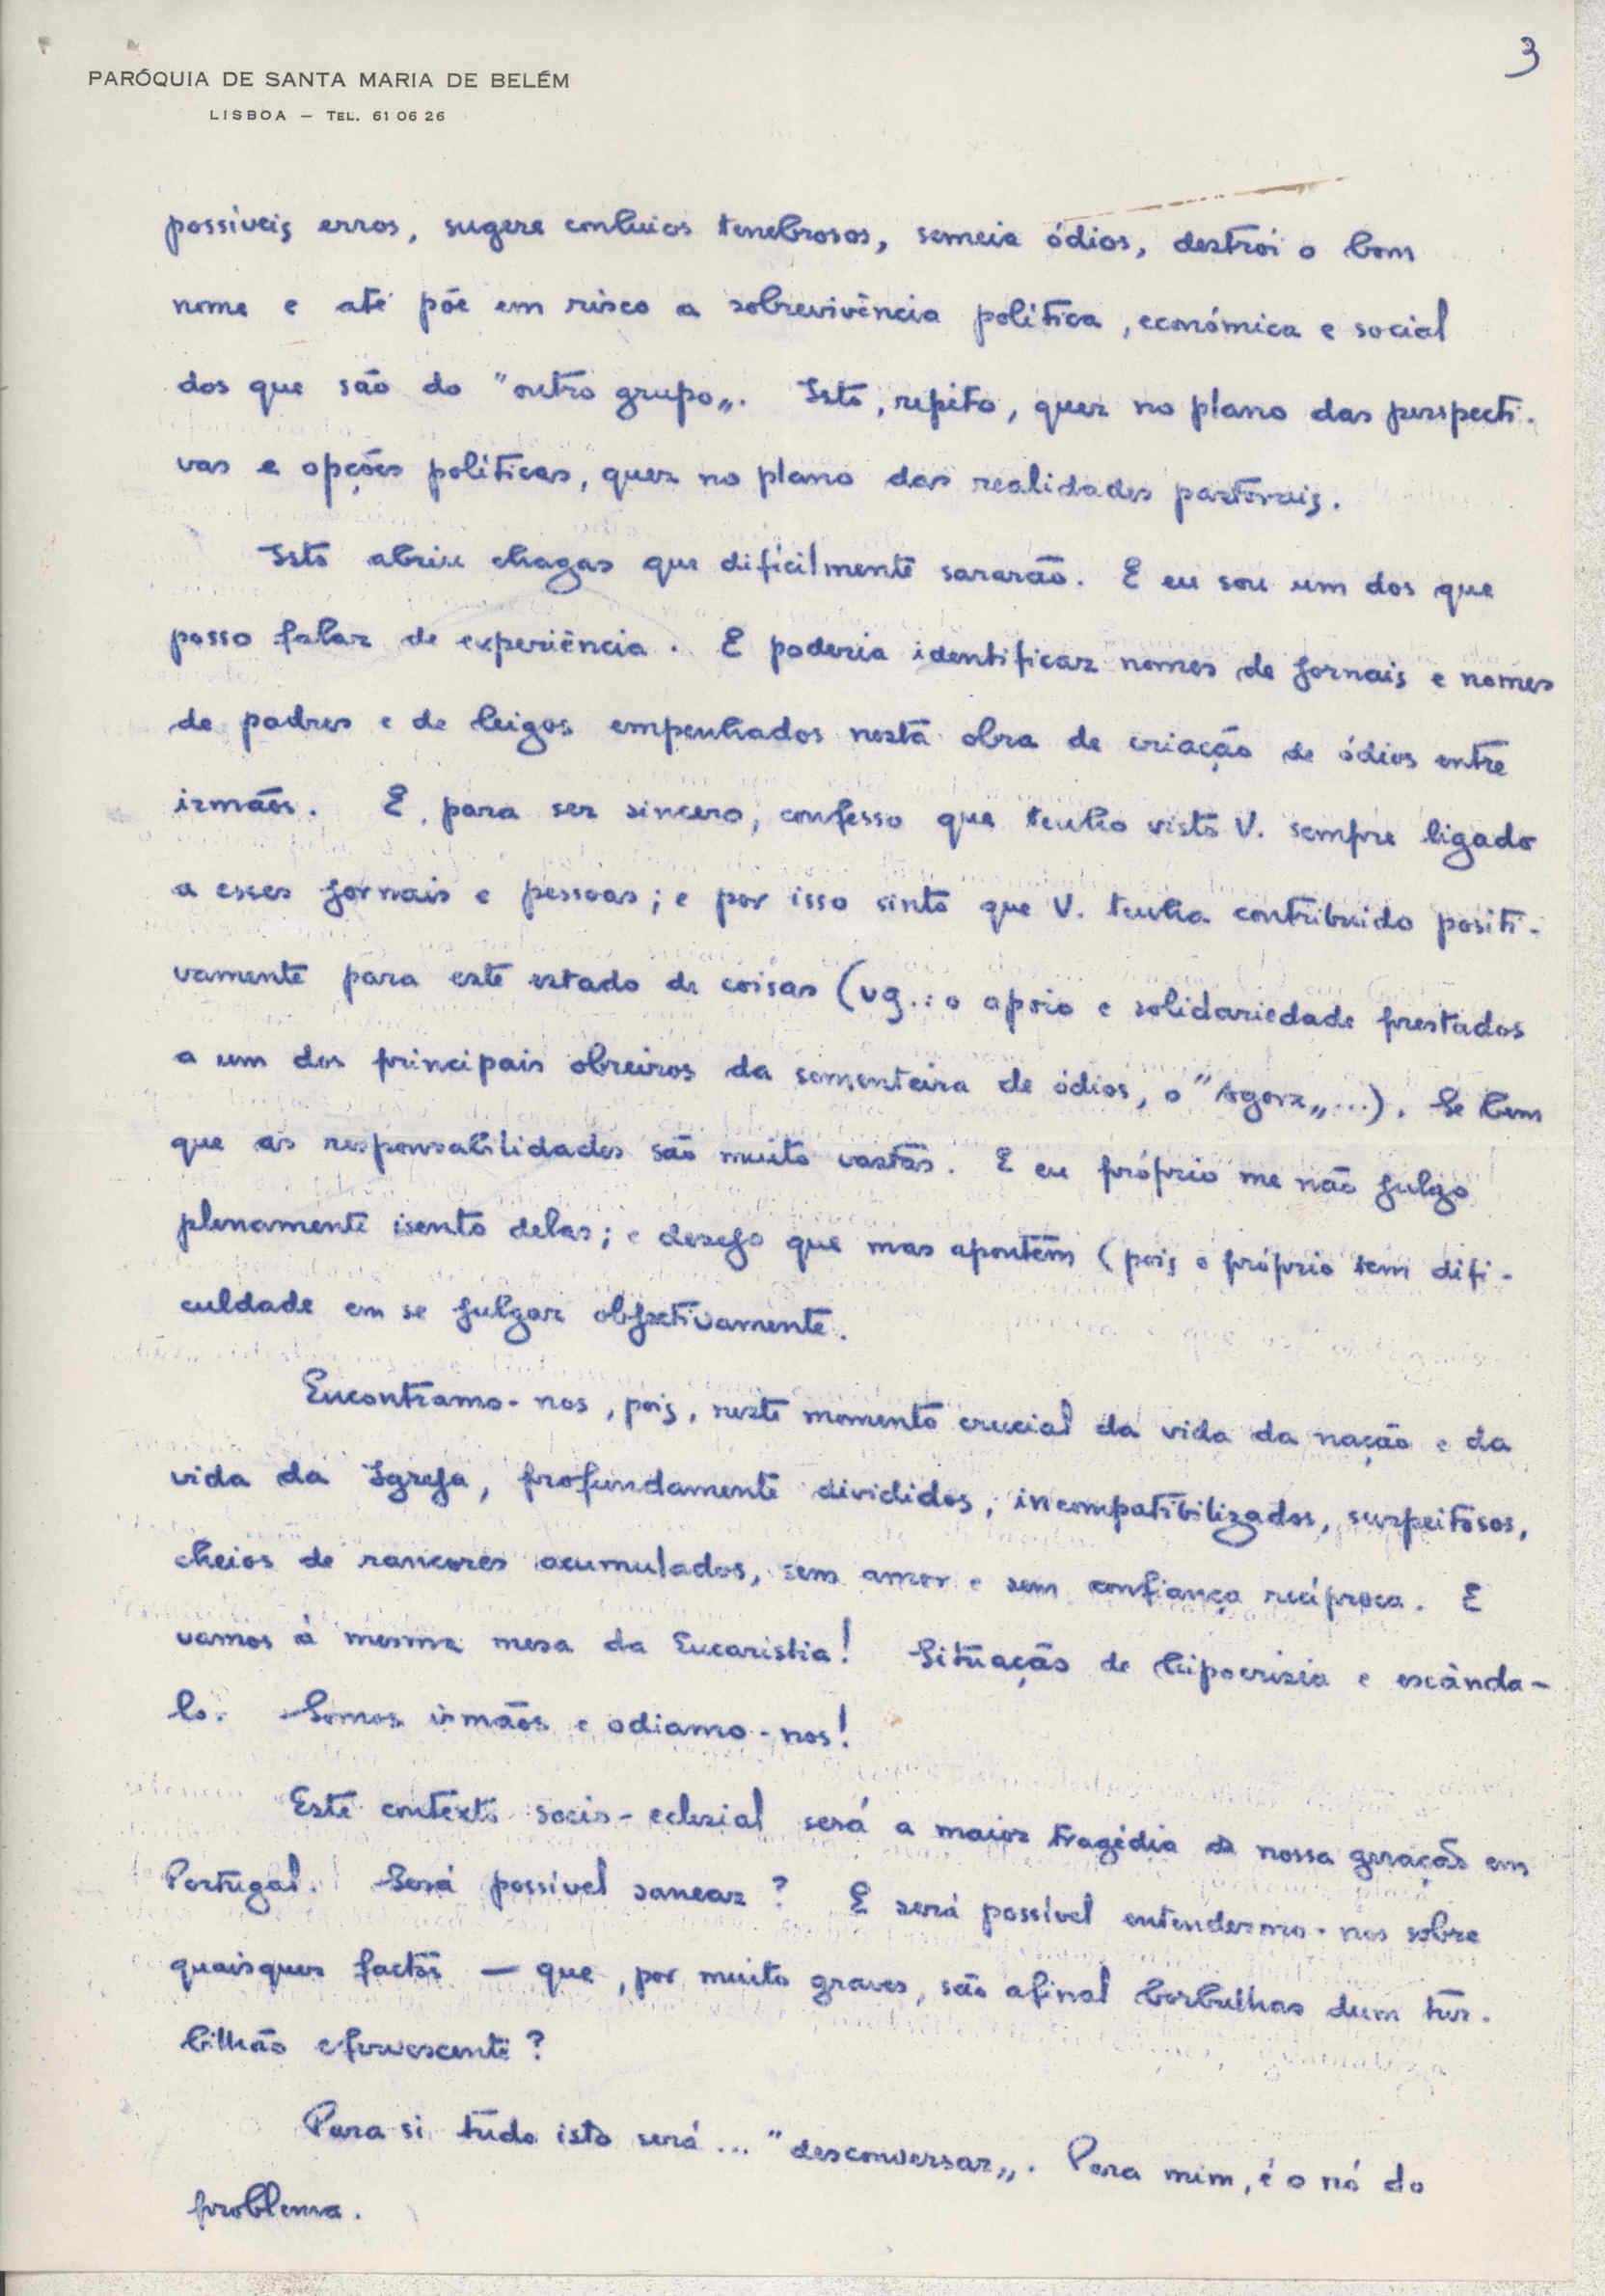 3
PARÓQUIA DE SANTA MARIA DE BELÉM
LISBOA — TEL. 61 06 26
possíveis erros, sugere conluios tenebrosos, semeia ódios, destrói o bom
nome e até põe em risco a sobrevivência política, económica e social
dos que são do "outro grupo„. Isto, repito, quer no plano das perspecti-
vas e opções políticas, quer no plano das realidades pastorais.
Isto abriu chagas que dificilmente sararão. E eu sou um dos que
posso falar de experiência. E poderia identificar nomes de jornais e nomes
de padres e de leigos empenhados nesta obra de criação de ódios entre
irmãos. E, para ser sincero, confesso que tenho visto V. sempre ligado
a esses jornais e pessoas; e por isso sinto que V. tenha contribuido positi-
vamente para este estado de coisas (vg.: o apoio e solidariedade prestados
a um dos principais obreiros da sementeira de ódios, o "Agora„...). Se bem
que as responsabilidades são muito vastas. E eu próprio me não julgo
plenamente isento delas; e desejo que mas apontem (pois o próprio tem difi-
culdade em se julgar objectivamente.
Encontramo-nos, pois, neste momento crucial da vida da nação e da
vida da Igreja, profundamente divididos, incompatibilizados, suspeitosos,
cheios de rancores acumulados, sem amor e sem confiança recíproca. E
vamos à mesma mesa da Eucaristia! Situação de hipocrisia e escânda-
lo. Somos irmãos e odiamo-nos!
Este contexto socio-eclesial será a maior tragédia da nossa geração em
Portugal. Será possível sanear? E será possível entendermo-nos sobre
quaisquer factos — que, por muito graves, são afinal borbulhas dum tur-
bilhão efervescente?
Para si tudo isto será... "desconversar„. Para mim, é o nó do
problema.